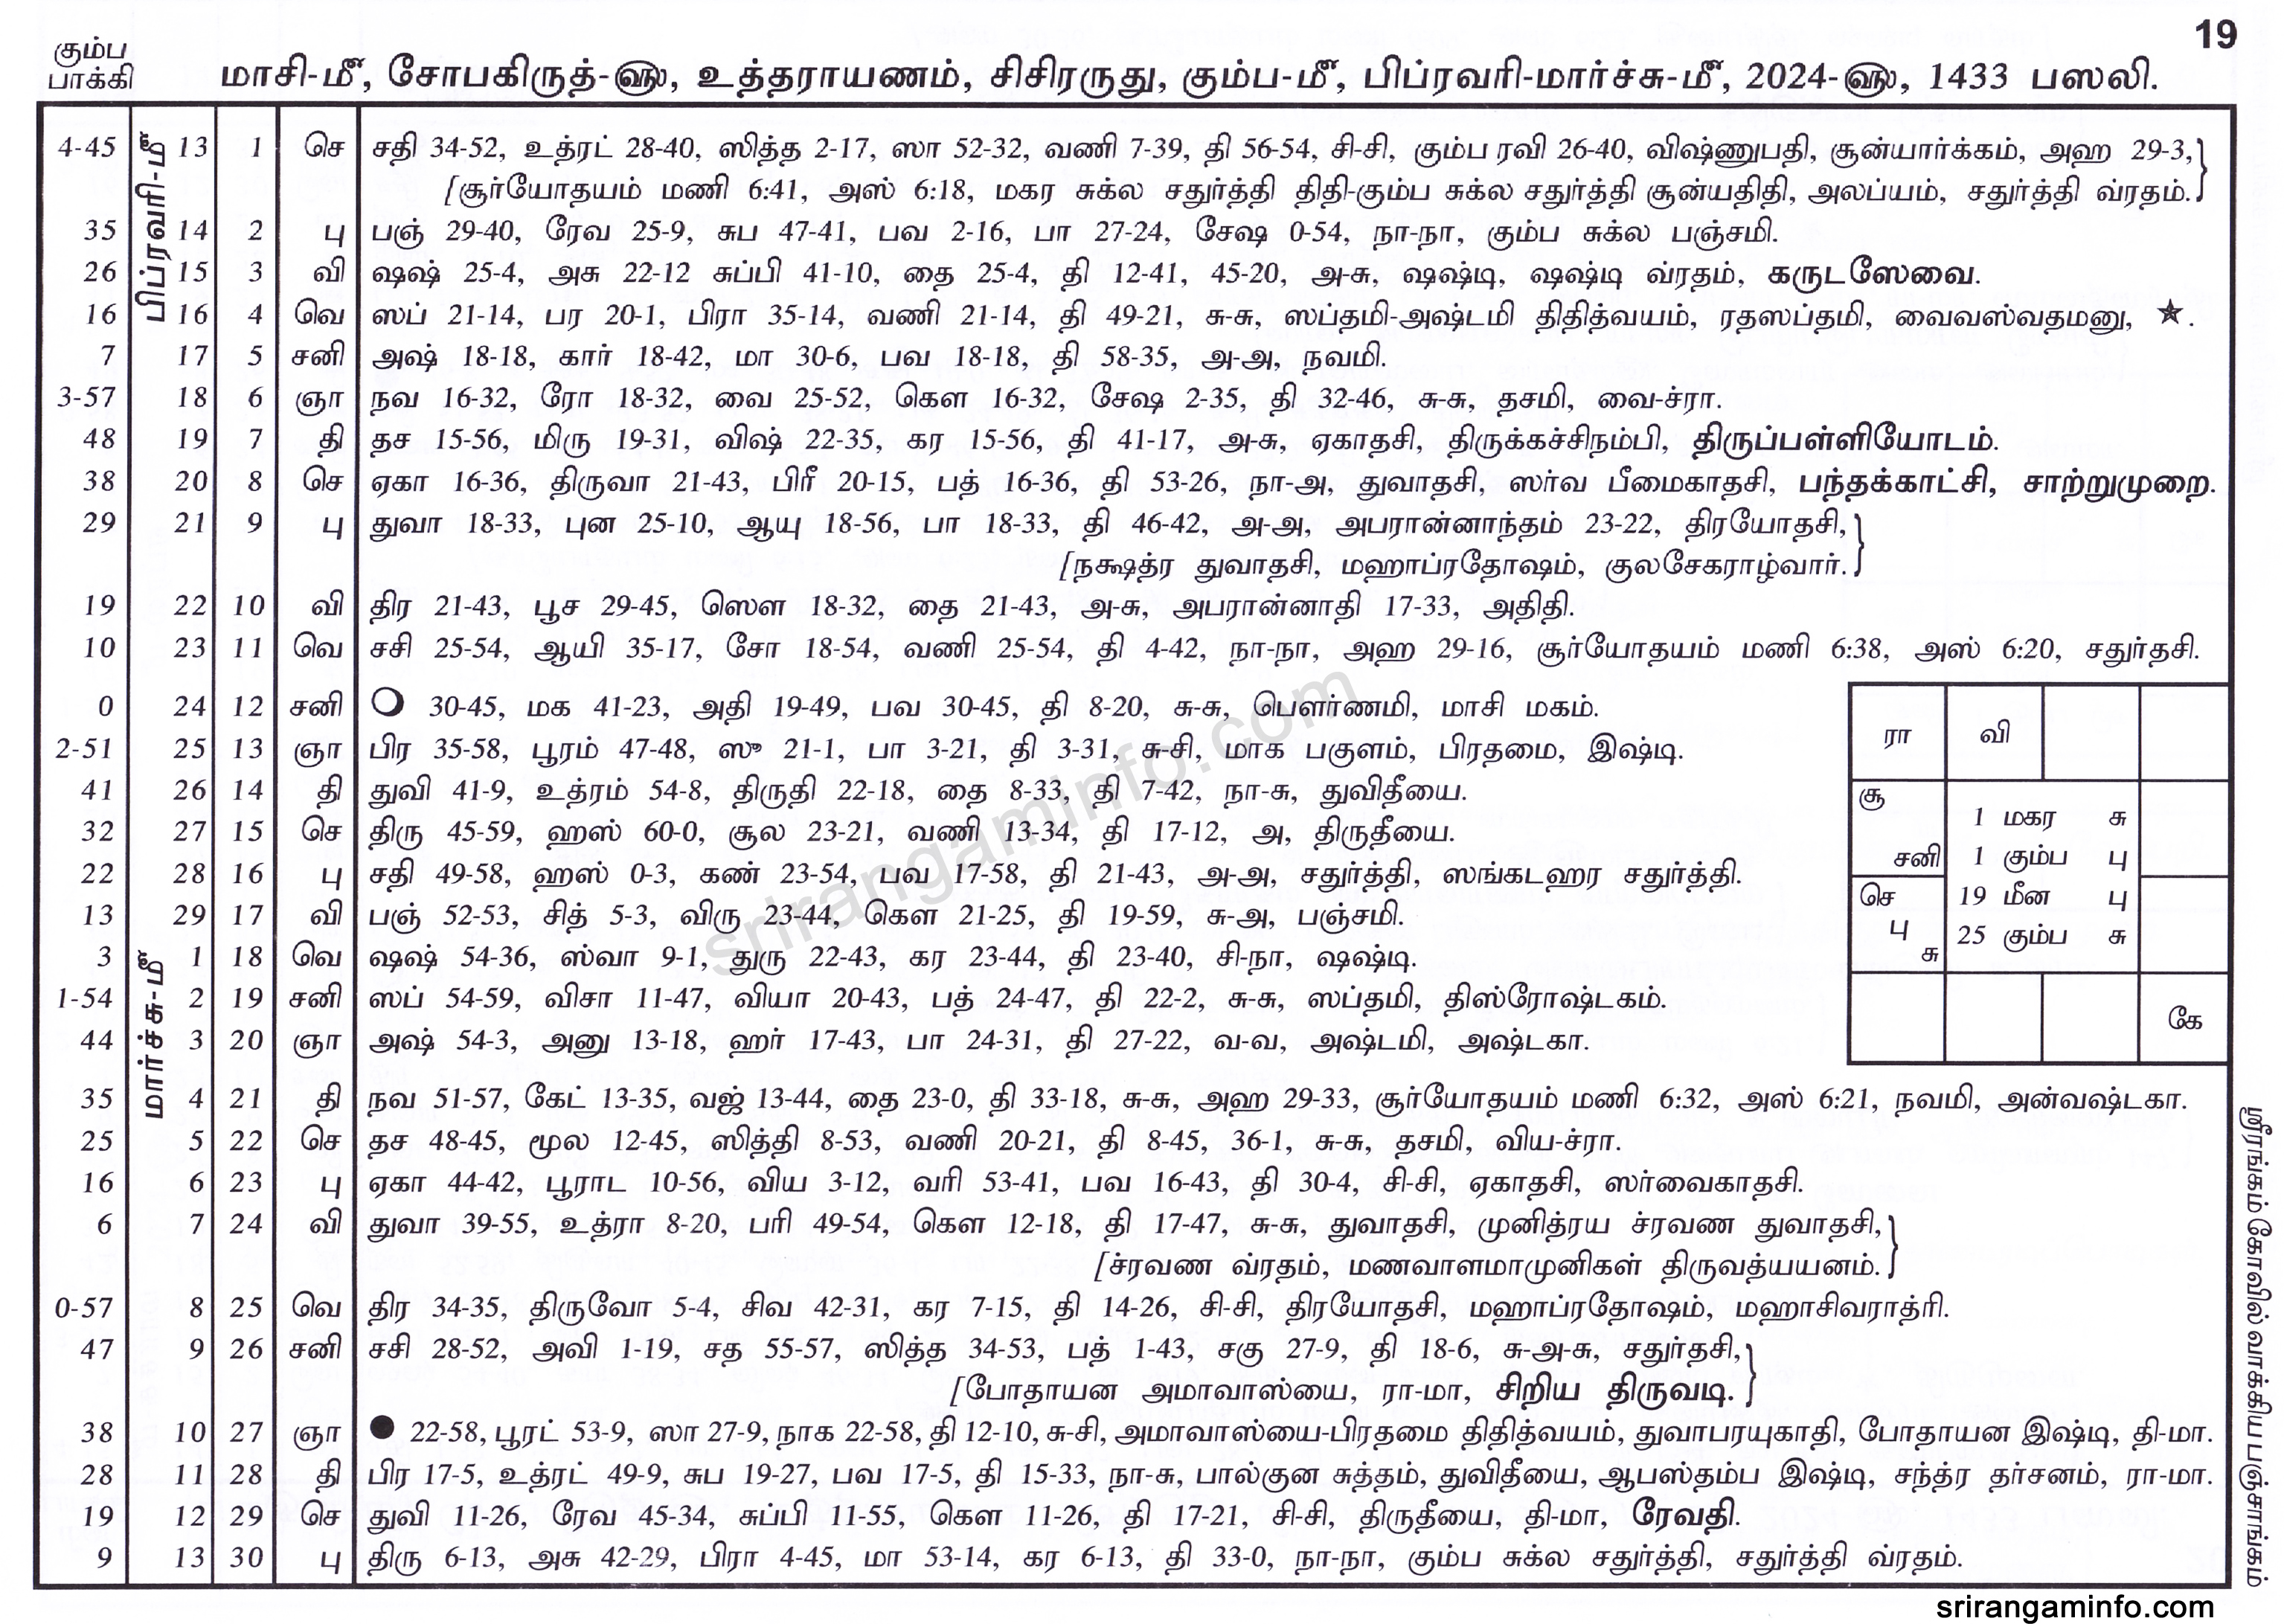 19
கும்ப
பாக்கி
மாசி-மீ, சோபகிருத்-௵, உத்தராயணம், சிசிரருது, கும்ப-மீ, பிப்ரவரி-மார்ச்சு-மீ, 2024-௵, 1433 பஸலி.
பிப்ரவரி-மீ
4-45 13 1 செ சதி 34-52, உத்ரட் 28-40, ஸித்த 2-17, ஸா 52-32, வணி 7-39, தி 56-54, சி-சி, கும்ப ரவி 26-40, விஷ்ணுபதி, சூன்யார்க்கம், அஹ 29-3,}
[சூர்யோதயம் மணி 6:41, அஸ் 6:18, மகர சுக்ல சதுர்த்தி திதி-கும்ப சுக்ல சதுர்த்தி சூன்யதிதி, அலப்யம், சதுர்த்தி வ்ரதம்.
35 14 2 பு பஞ் 29-40, ரேவ 25-9, சுப 47-41, பவ 2-16, பா 27-24, சேஷ 0-54, நா-நா, கும்ப சுக்ல பஞ்சமி.
26 15 3 வி ஷஷ் 25-4, அசு 22-12 சுப்பி 41-10, தை 25-4, தி 12-41, 45-20, அ-சு, ஷஷ்டி, ஷஷ்டி வ்ரதம், கருடஸேவை.
16 16 4 வெ ஸப் 21-14, பர 20-1, பிரா 35-14, வணி 21-14, தி 49-21, சு-சு, ஸப்தமி-அஷ்டமி திதித்வயம், ரதஸப்தமி, வைவஸ்வதமனு, ★.
7 17 5 சனி அஷ் 18-18, கார் 18-42, மா 30-6, பவ 18-18, தி 58-35, அ-அ, நவமி.
3-57 18 6 ஞா நவ 16-32, ரோ 18-32, வை 25-52, கௌ 16-32, சேஷ 2-35, தி 32-46, சு-சு, தசமி, வை-ச்ரா.
48 19 7 தி தச 15-56, மிரு 19-31, விஷ் 22-35, கர 15-56, தி 41-17, அ-சு, ஏகாதசி, திருக்கச்சிநம்பி, திருப்பள்ளியோடம்.
38 20 8 செ ஏகா 16-36, திருவா 21-43, பிரீ 20-15, பத் 16-36, தி 53-26, நா-அ, துவாதசி, ஸர்வ பீமைகாதசி, பந்தக்காட்சி, சாற்றுமுறை.
29 21 9 பு துவா 18-33, புன 25-10, ஆயு 18-56, பா 18-33, தி 46-42, அ-அ, அபரான்னாந்தம் 23-22, திரயோதசி,}
[நக்ஷத்ர துவாதசி, மஹாப்ரதோஷம், குலசேகராழ்வார்.
19 22 10 வி திர 21-43, பூச 29-45, ஸௌ 18-32, தை 21-43, அ-சு, அபரான்னாதி 17-33, அதிதி.
10 23 11 வெ சசி 25-54, ஆயி 35-17, சோ 18-54, வணி 25-54, தி 4-42, நா-நா, அஹ 29-16, சூர்யோதயம் மணி 6:38, அஸ் 6:20, சதுர்தசி.
0 24 12 சனி ○ 30-45, மக 41-23, அதி 19-49, பவ 30-45, தி 8-20, சு-சு, பௌர்ணமி, மாசி மகம்.
2-51 25 13 ஞா பிர 35-58, பூரம் 47-48, ஸு 21-1, பா 3-21, தி 3-31, சு-சி, மாக பகுளம், பிரதமை, இஷ்டி.
41 26 14 தி துவி 41-9, உத்ரம் 54-8, திருதி 22-18, தை 8-33, தி 7-42, நா-சு, துவிதீயை.
32 27 15 செ திரு 45-59, ஹஸ் 60-0, சூல 23-21, வணி 13-34, தி 17-12, அ, திருதீயை.
22 28 16 பு சதி 49-58, ஹஸ் 0-3, கண் 23-54, பவ 17-58, தி 21-43, அ-அ, சதுர்த்தி, ஸங்கடஹர சதுர்த்தி.
13 29 17 வி பஞ் 52-53, சித் 5-3, விரு 23-44, கௌ 21-25, தி 19-59, சு-அ, பஞ்சமி.
மார்ச்சு-மீ
3 1 18 வெ ஷஷ் 54-36, ஸ்வா 9-1, துரு 22-43, கர 23-44, தி 23-40, சி-நா, ஷஷ்டி.
1-54 2 19 சனி ஸப் 54-59, விசா 11-47, வியா 20-43, பத் 24-47, தி 22-2, சு-சு, ஸப்தமி, திஸ்ரோஷ்டகம்.
44 3 20 ஞா அஷ் 54-3, அனு 13-18, ஹர் 17-43, பா 24-31, தி 27-22, வ-வ, அஷ்டமி, அஷ்டகா.
ரா வி
சூ
சனி
1 மகர சு
1 கும்ப பு
செ
பு
சு
19 மீன பு
25 கும்ப சு
கே
35 4 21 தி நவ 51-57, கேட் 13-35, வஜ் 13-44, தை 23-0, தி 33-18, சு-சு, அஹ 29-33, சூர்யோதயம் மணி 6:32, அஸ் 6:21, நவமி, அன்வஷ்டகா.
25 5 22 செ தச 48-45, மூல 12-45, ஸித்தி 8-53, வணி 20-21, தி 8-45, 36-1, சு-சு, தசமி, விய-ச்ரா.
16 6 23 பு ஏகா 44-42, பூராட 10-56, விய 3-12, வரி 53-41, பவ 16-43, தி 30-4, சி-சி, ஏகாதசி, ஸர்வைகாதசி.
6 7 24 வி துவா 39-55, உத்ரா 8-20, பரி 49-54, கௌ 12-18, தி 17-47, சு-சு, துவாதசி, முனித்ரய ச்ரவண துவாதசி,}
[ச்ரவண வ்ரதம், மணவாளமாமுனிகள் திருவத்யயனம்.
0-57 8 25 வெ திர 34-35, திருவோ 5-4, சிவ 42-31, கர 7-15, தி 14-26, சி-சி, திரயோதசி, மஹாப்ரதோஷம், மஹாசிவராத்ரி.
47 9 26 சனி சசி 28-52, அவி 1-19, சத 55-57, ஸித்த 34-53, பத் 1-43, சகு 27-9, தி 18-6, சு-அ-சு, சதுர்தசி,}
[போதாயன அமாவாஸ்யை, ரா-மா, சிறிய திருவடி.
38 10 27 ஞா ● 22-58, பூரட் 53-9, ஸா 27-9, நாக 22-58, தி 12-10, சு-சி, அமாவாஸ்யை-பிரதமை திதித்வயம், துவாபரயுகாதி, போதாயன இஷ்டி, தி-மா.
28 11 28 தி பிர 17-5, உத்ரட் 49-9, சுப 19-27, பவ 17-5, தி 15-33, நா-சு, பால்குன சுத்தம், துவிதீயை, ஆபஸ்தம்ப இஷ்டி, சந்த்ர தர்சனம், ரா-மா.
19 12 29 செ துவி 11-26, ரேவ 45-34, சுப்பி 11-55, கௌ 11-26, தி 17-21, சி-சி, திருதீயை, தி-மா, ரேவதி.
9 13 30 பு திரு 6-13, அசு 42-29, பிரா 4-45, மா 53-14, கர 6-13, தி 33-0, நா-நா, கும்ப சுக்ல சதுர்த்தி, சதுர்த்தி வ்ரதம்.
ஸ்ரீரங்கம் கோவில் வாக்கிய பஞ்சாங்கம்
srirangaminfo.com
srirangaminfo.com